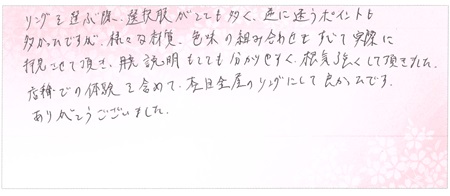 リングを選ぶ際、選択肢がとても多く、色に迷うポイントも
多かったですが、様々な材質、色味の組み合わせをすべて実際に
拝見させて頂き、説明もとても分かりやすく、根気強くして頂きました。
店補での体験を含めて、杢目金屋のリングにして良かったです。
ありがとうございました。